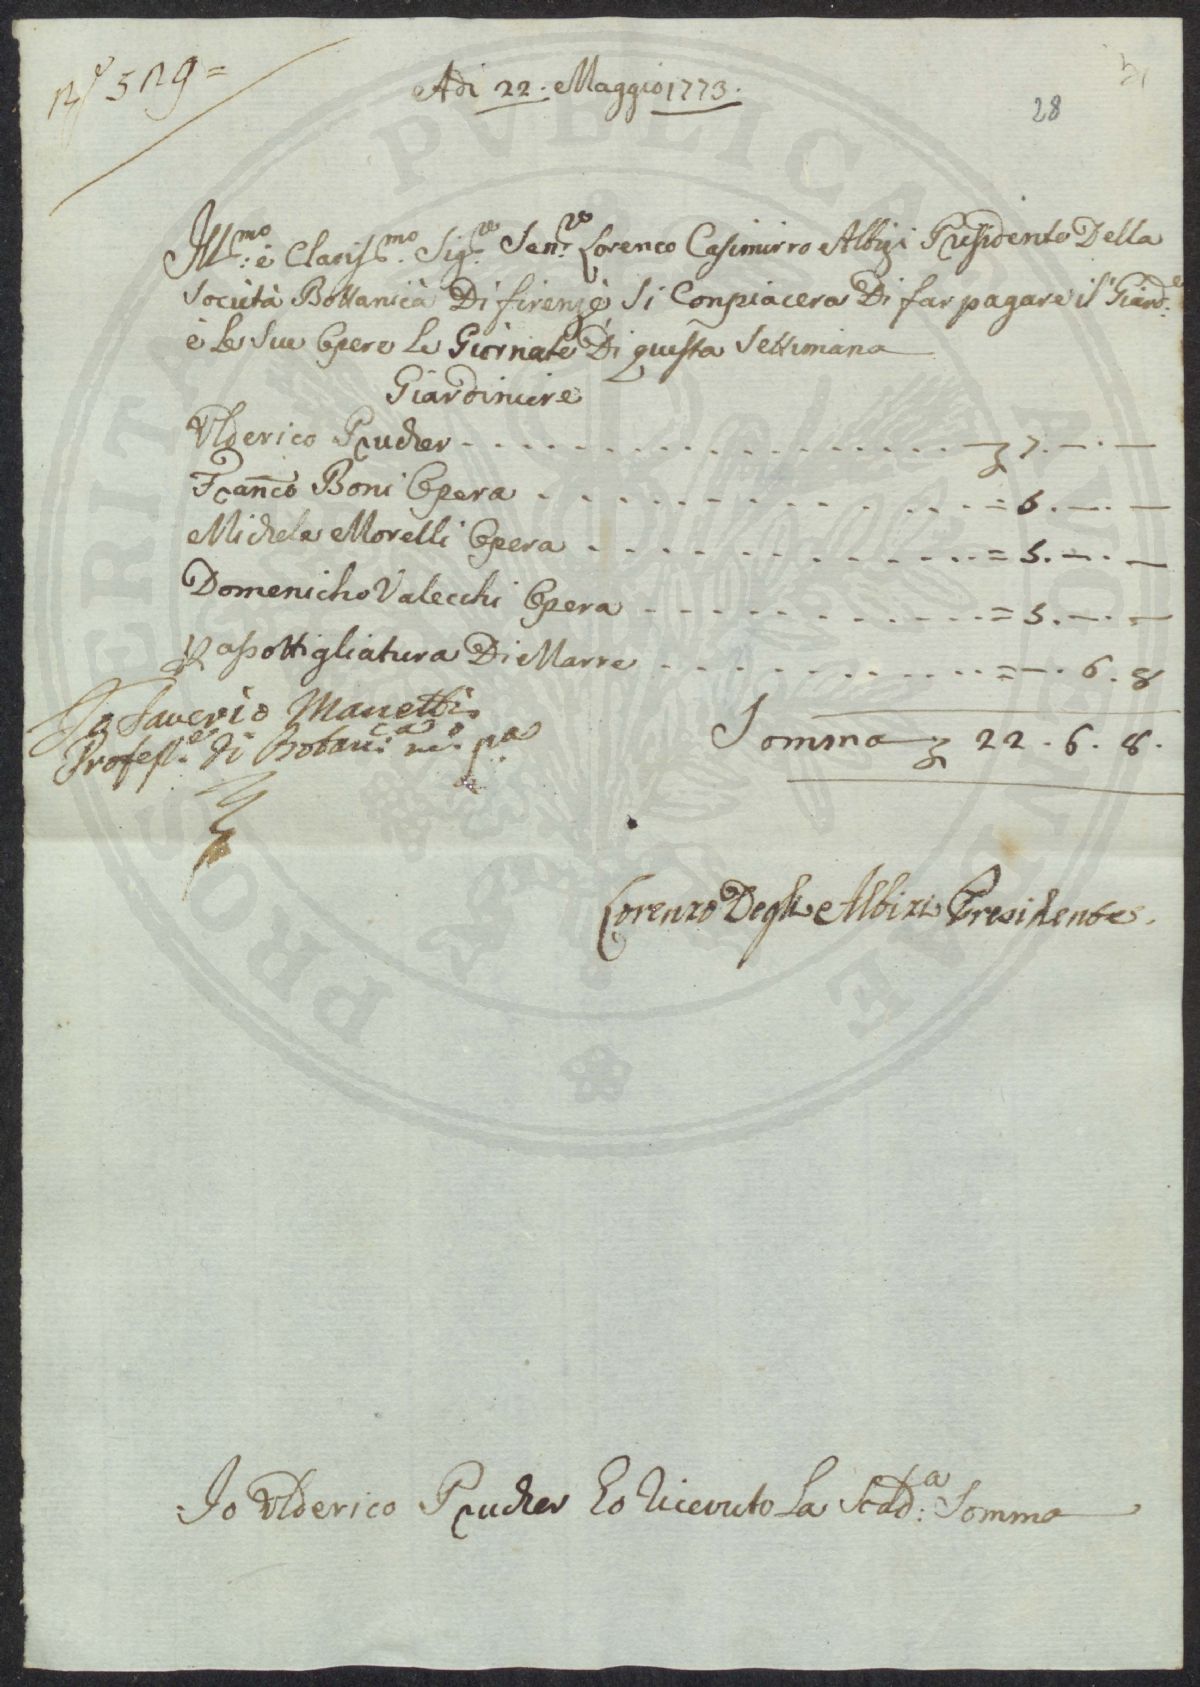 N.° 529=
Adi 22. Maggio 1773.
28
Ill:mo è Claris:mo Sig:re Sen:re Lorenco Casimirro Albizi Presidente Della
Società Bottanica Di firenze Si Conpiacera Di far pagare il Giard:e
è le Sue Opere le Giornate Di questa Settimana
Giardiniere
Vlderico Prucher - - - - - - - - - - - 7. — . —
Franc̃o Boni Opera - - - - - - - - = 6. — . —
Michele Morelli Opera - - - - - - - - = 5. — . —
Domenicho Valecchi Opera - - - - - - - = 5. — . —
P asottigliatura Di Marre - - - - - - - = — . 6 . 8
Io Saverio Manetti
Profess:e di Botanica m:o p:a
Somma 22 . 6 . 8 .
Lorenzo Degli Albizi Presidente.
Io Vlderico Prucher Ho Ricevuto La Scad:a Somma
PROSPERITATI PVBLICAE AVGENDAE